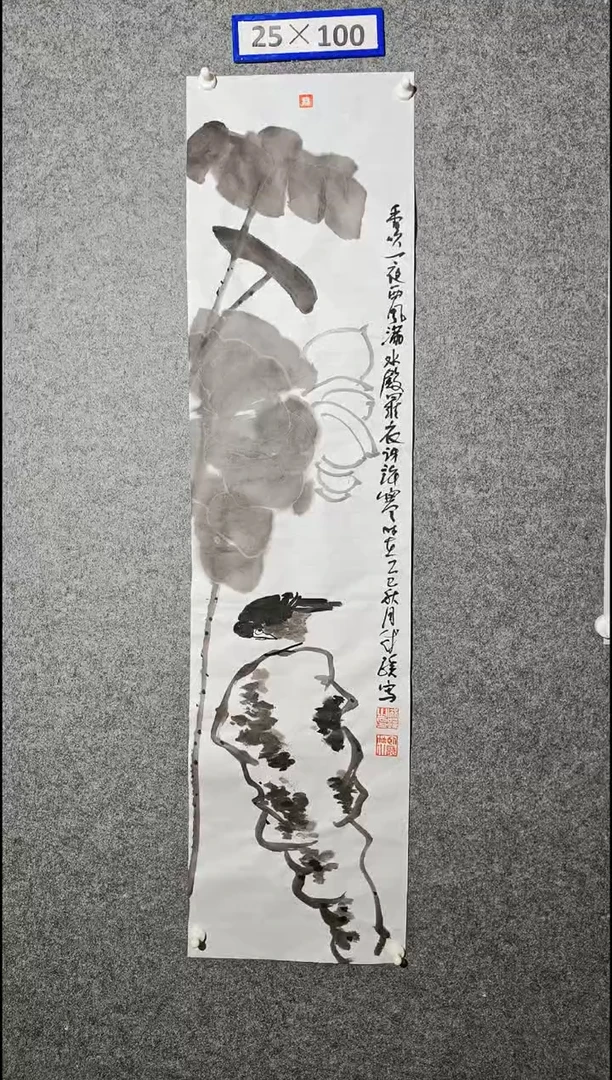 25×100
香吹一夜西风满水殿罗衣许许寒时在乙巳秋月写